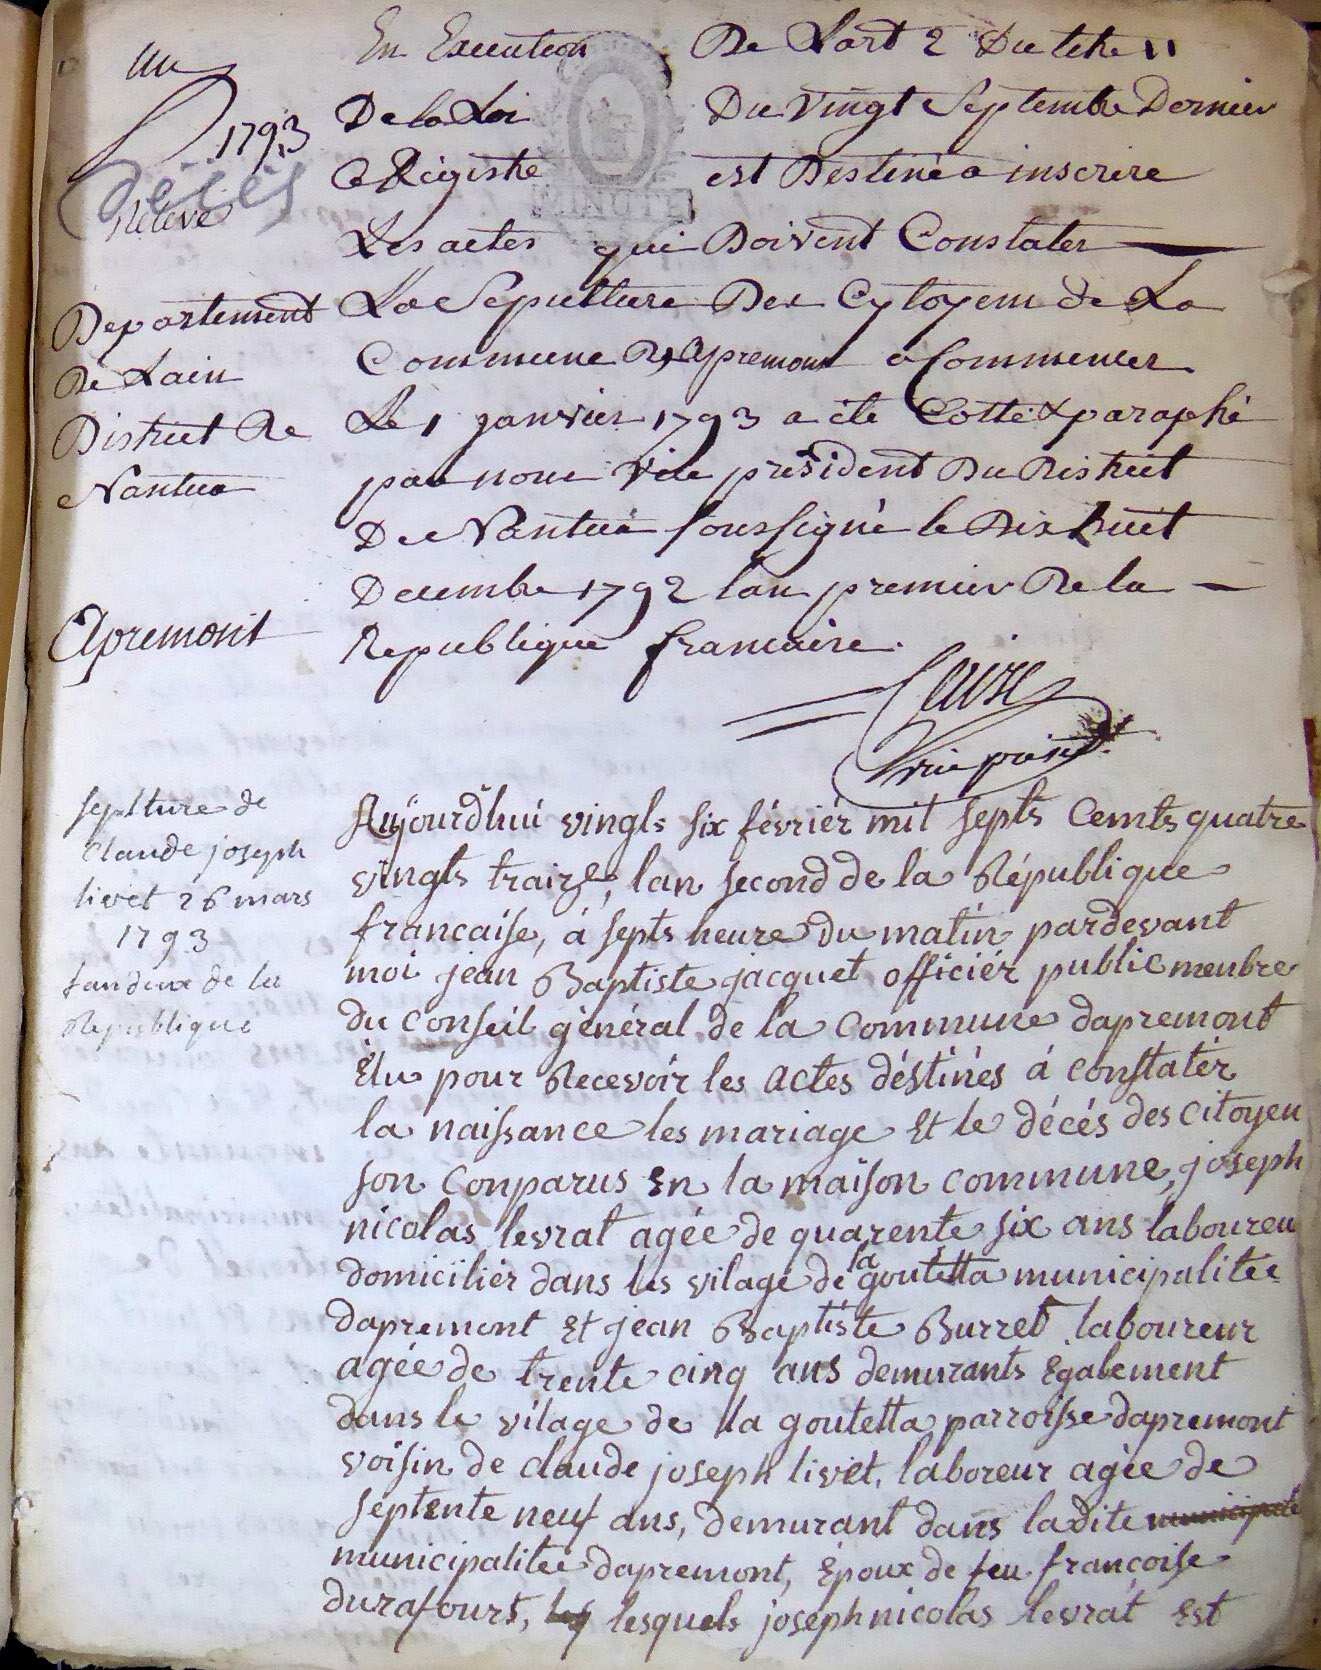 un
1793
décès
Relevé
En Execution De Lart 2 Du titre 11
De la Loi Du Vingt Septembre Dernier
Ce Régistre est Destiné a inscrire
MINUTE
Les actes qui Doivent Constater
La Sepulture Des Cytoyem de La
Commune D'apremont a Commencer
Le 1 janvier 1793 a été Cotté & paraphé
par nous vice président Du District
De Nantua soussigné le Dix huit
Decembre 1792 lan premier De la
Republique francaise.
Departement
De Lain
District De
Nantua
Apremont
vice présid.
seplture de
Claude joseph
livet 26 mars
1793
lan deux de la
Republique
Aujourd'hui vingts six février mil septs Cemts quatre
vingts traize, lan second de la République
francaise, á septs heure du matin pardevant
moi jean Baptiste jacquet officiér public menbre
du conseil général de la commune dapremont
Élu pour Recevoir les actes déstinés á constatér
la naissance les mariage Et le décés des citoyen
son Conparus En la maison commune, joseph
nicolas levrat agée de quarente six ans laboureu
domicïliér dans les vilage de la goutetta municipalitée
dapremont Et jean Baptiste Burret laboureur
agée de trente cinq ans demurants Également
dans le vilage de la goutetta parroisse dapremont
voisin de claude joseph livet, laboreur agée de
septente neuf ans, demurant dans la dite municipalité
municipalitée dapremont, Époux de feu françoise
durafourt, les lesquels joseph nicolas levrat Est